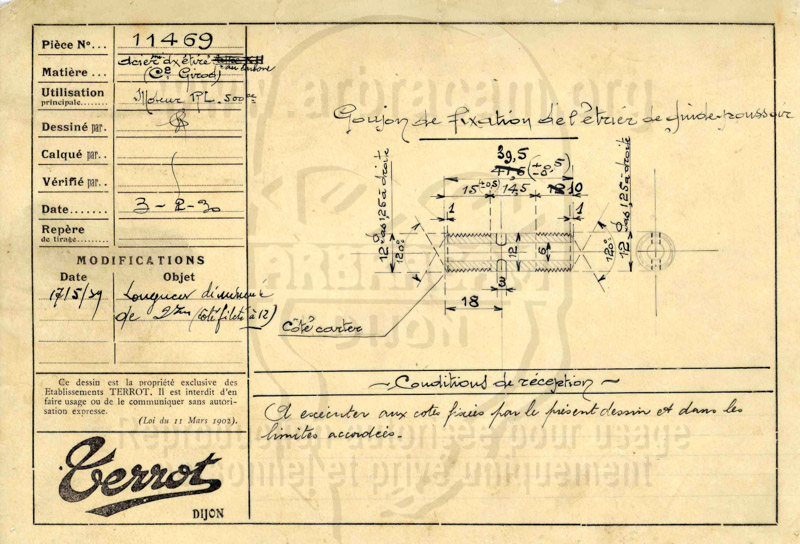 Pièce N°... 11469
Matière ... acier dx étiré au carbone
(Cie Girod)
Utilisation
principale....... Moteur RL. 500cc
Dessiné par.
Calqué par..
Vérifié par..
Date........ 3-2-30
Repère
de tirage.........
MODIFICATIONS
Date Objet
17/5/39 Longueur diminuée
de 2mm (côté fileté à 12)
Ce dessin est la propriété exclusive des
Etablissements TERROT. Il est interdit d'en
faire usage ou de le communiquer sans autori-
sation expresse.
(Loi du 11 Mars 1902).
Terrot
DIJON
Goujon de fixation de l'étrier de guide-poussoir
39,5
41,5 (±0,5)
15 (±0,5) 14,5 12 10
1 1
12 à 1,25 à droite
120°
12
6
12 à 1,25 à droite
120°
3
18
Côté carter
Conditions de réception
A exécuter aux cotes fixées par le présent dessin et dans les
limites accordées.
www.arbracam.org
ARBRACAM
DIJON
Reproduction autorisée pour usage
personnel et privé uniquement